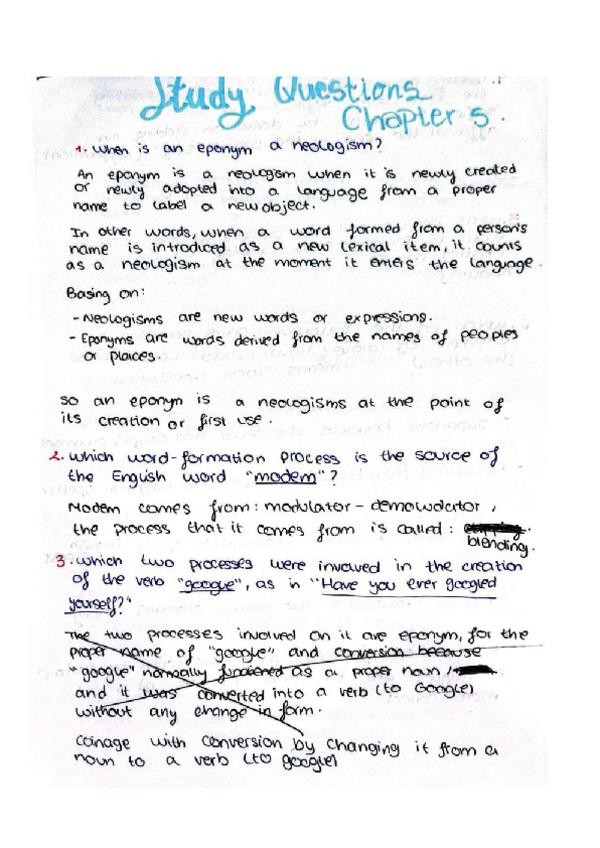 Study Questions
Chapter 5.
1. when is an eponym a neologism?
An eponym is a neologism when it is newly created
or newly adopted into a language from a proper
name to label a new object.
In other words, when a word formed from a person's
name is introduced as a new lexical item, it counts
as a neologism at the moment it enters the language.
Basing on:
- Neologisms are new words or expressions.
- Eponyms are words derived from the names of peoples
or places.
so an eponym is a neologisms at the point of
its creation or first use.
2. which word-formation process is the source of
the English word "modem"?
Modem comes from: modulator - demowdartor,
the process that it comes from is called:
blending.
3. which two processes were involved in the creation
of the verb "google", as in "Have you ever googled
yourself?"
The two processes involved on it are eponym, for the
proper name of "google" and conversion because
"google" normally functioned as a proper noun /
and it was converted into a verb (to Google)
without any change in form.
Coinage with conversion by changing it from a
noun to a verb (to google)